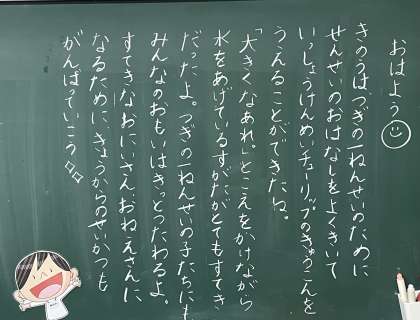 おはよう
きのうは、つぎの一ねんせいのために
せんせいのおはなしをよくきいて
いっしょうけんめいチューリップのきゅうこんを
うえることができたね。
「大きくなあれ。」とこえをかけながら
水をあげているすがたがとてもすてき
だったよ。つぎの一ねんせいの子たちにも
みんなのおもいはきっとつたわるよ。
すてきなおにいさん、おねえさんに
なるために、きょうからのせいかつも
がんばっていこう